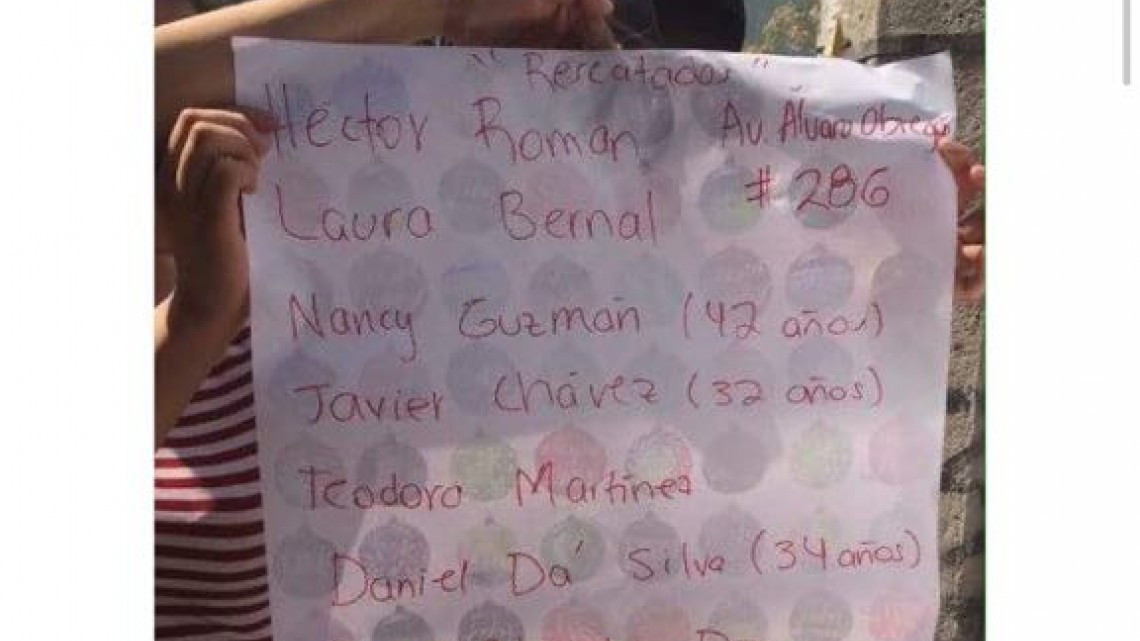 "Rescatados"
Héctor Roman
Av. Álvaro Obregó
# 286
Laura Bernal
Nancy Guzmán (42 años)
Javier Chávez (32 años)
Teodoro Martínez
Daniel Dá Silva (34 años)